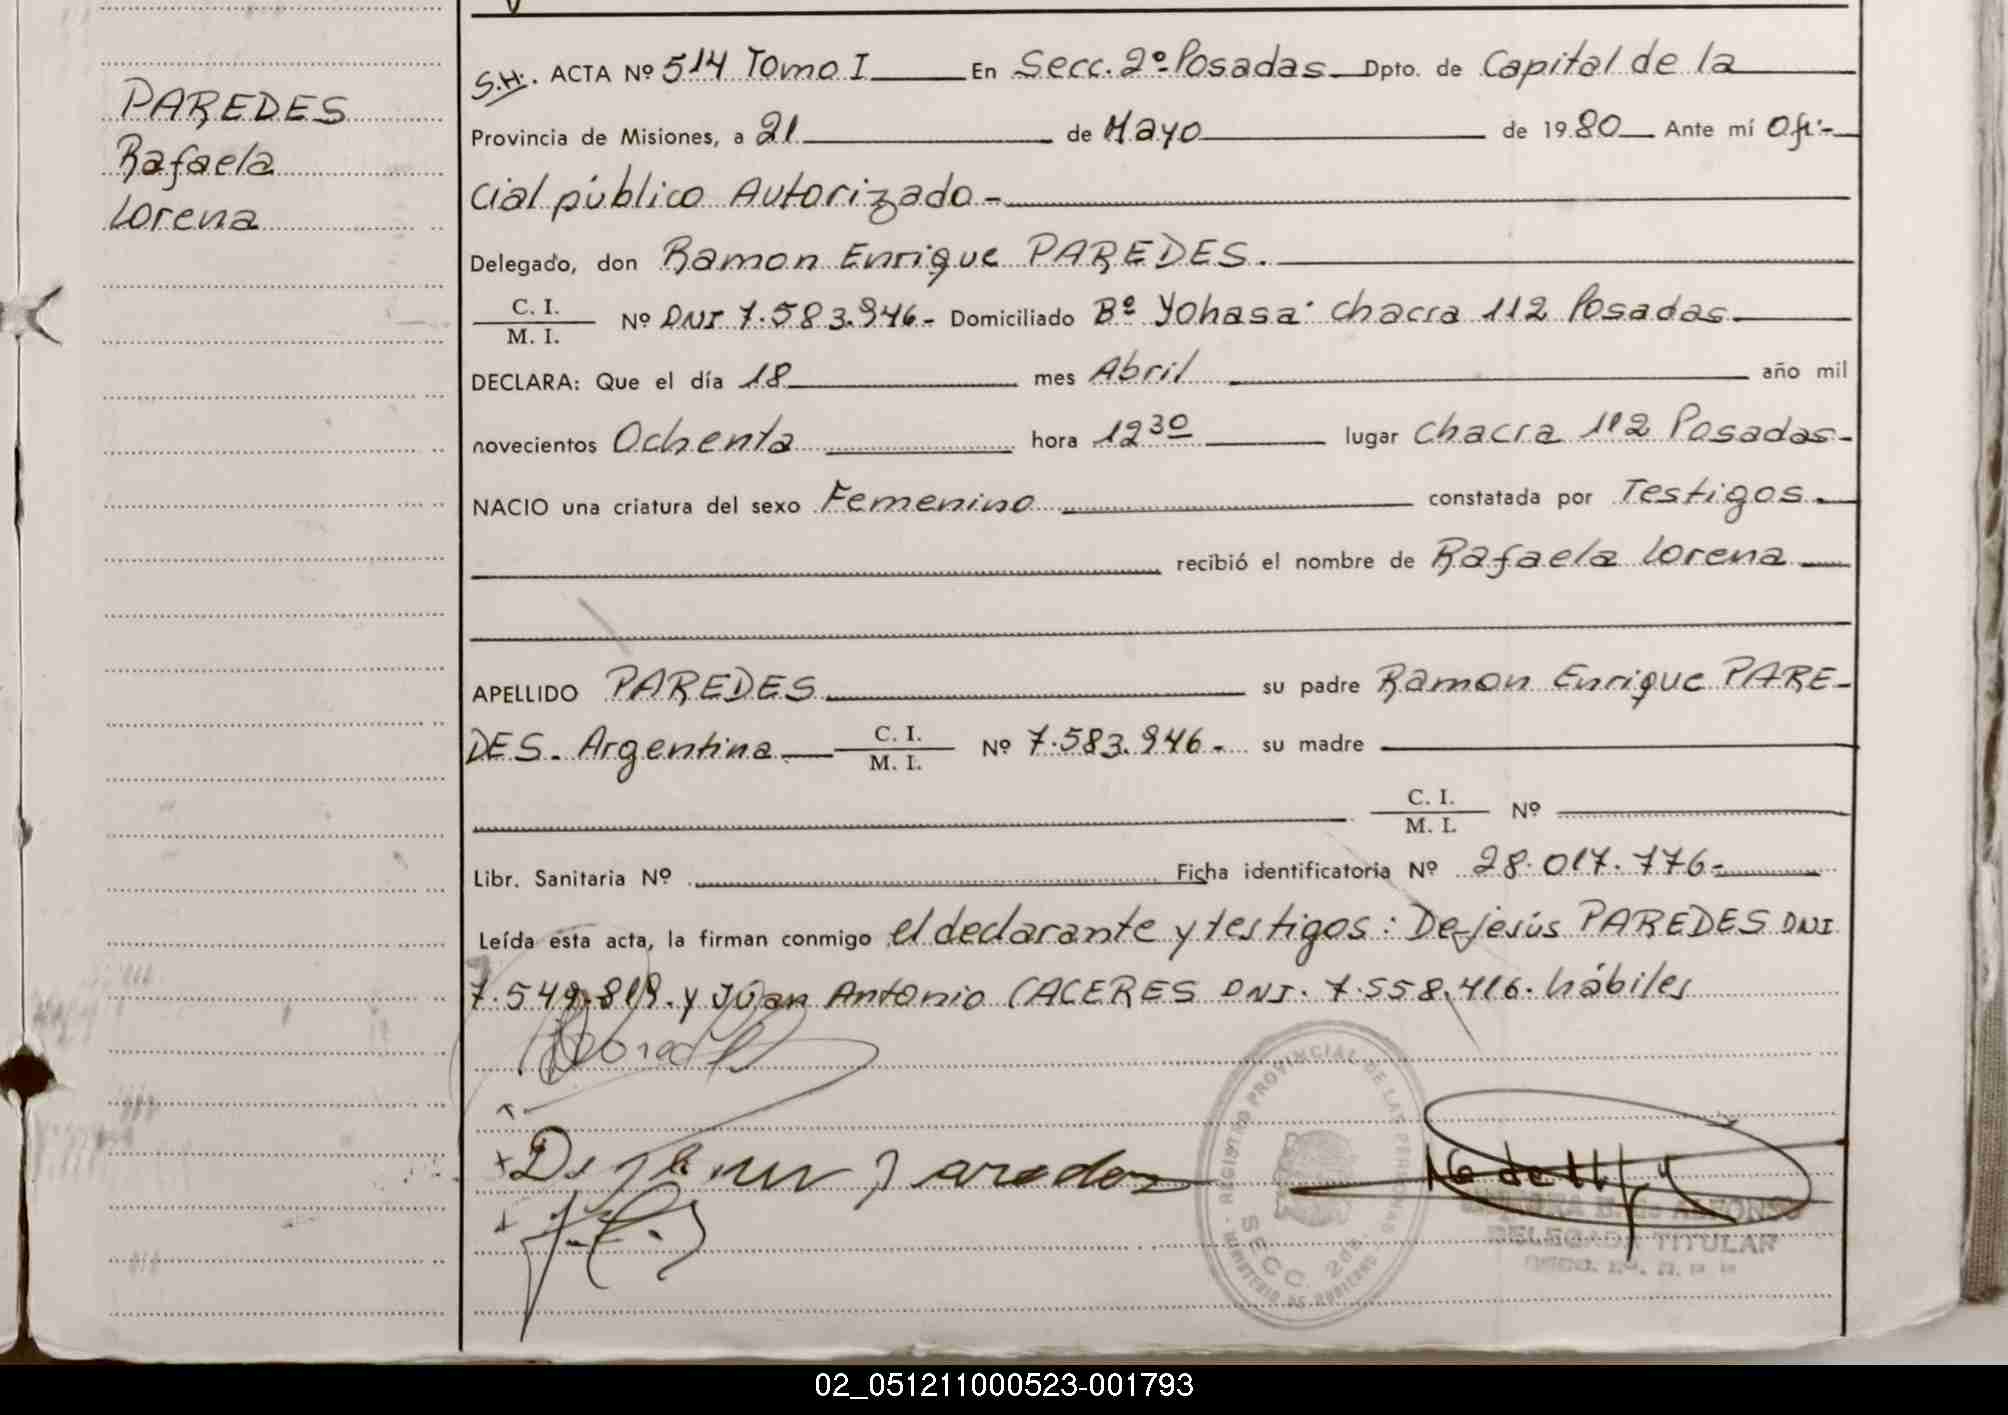 PAREDES
Rafaela
Lorena
S.H. ACTA Nº 514 Tomo I En Secc. 2º Posadas Dpto. de Capital de la
Provincia de Misiones, a 21 de Mayo de 1980 Ante mí Ofi-
cial público Autorizado -
Delegado, don Ramon Enrique PAREDES.
C. I.
M. I.
Nº DNI 7.583.946- Domiciliado Bº Yohasa chacra 112 Posadas
DECLARA: Que el día 18 mes Abril año mil
novecientos Ochenta hora 12 30 lugar chacra 112 Posadas-
NACIO una criatura del sexo Femenino constatada por Testigos.
recibió el nombre de Rafaela Lorena
APELLIDO PAREDES su padre Ramon Enrique PARE-
DES. Argentina C. I. M. I. Nº 7.583.946- su madre
C. I.
M. I.
Nº
Libr. Sanitaria Nº Ficha identificatoria Nº 28.017.776-
Leída esta acta, la firman conmigo el declarante y testigos: De jesús PAREDES DNI
7.549.819. y Juan Antonio CACERES DNI. 7.558.416. hábiles
REGISTRO PROVINCIAL DE LAS PERSONAS
SECC. 2da.
MINISTERIO DE GOBIERNO
DE ALFONSO
DELEGADA TITULAR
02_051211000523-001793